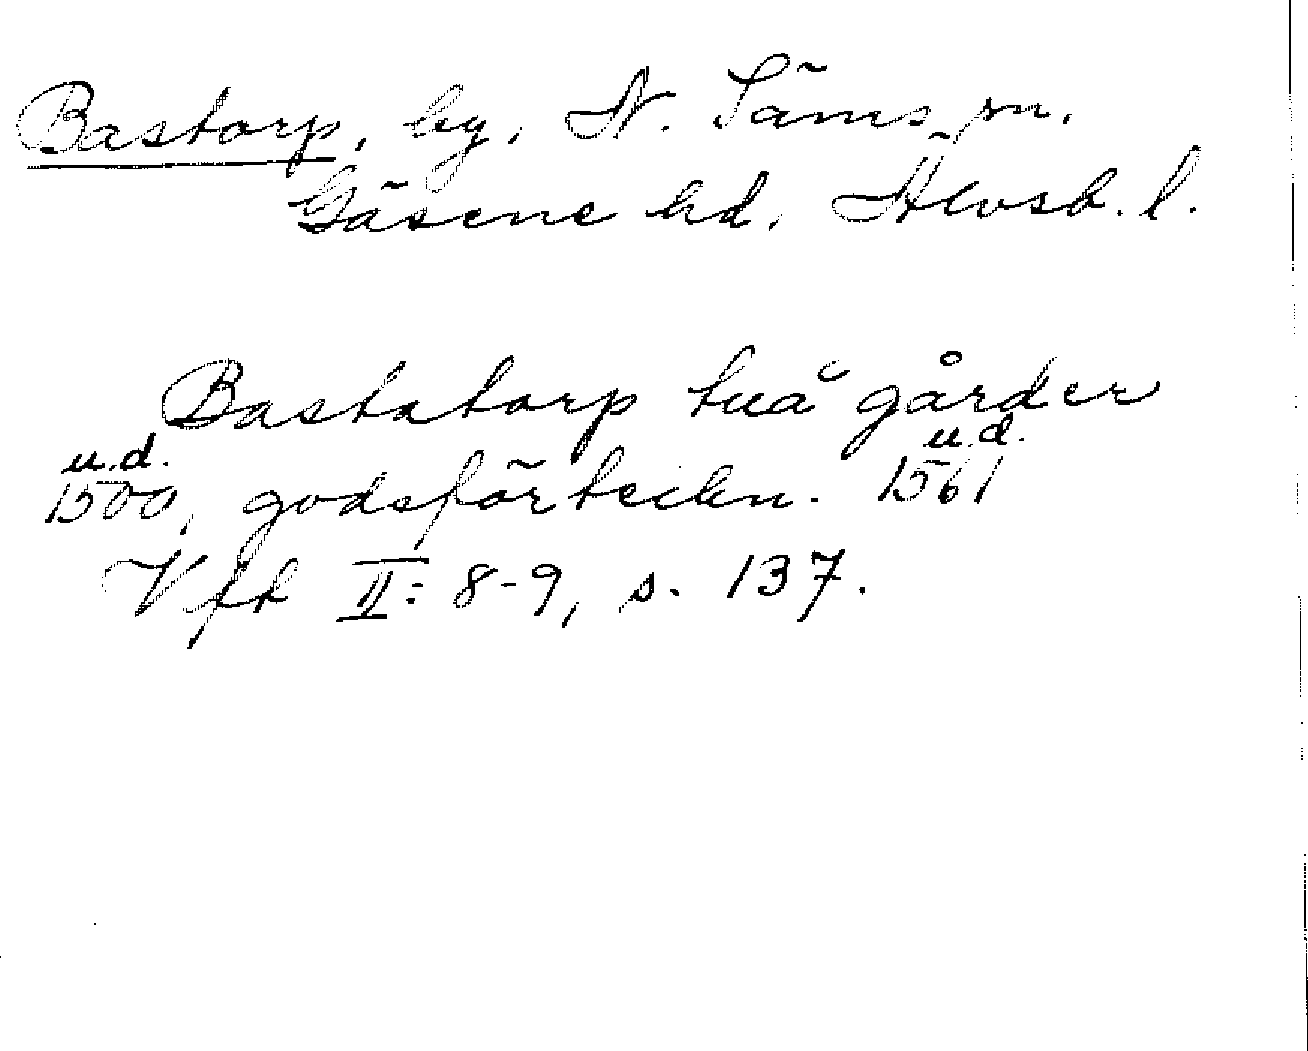 Bastorp, by, N. Säms sn.
Gäsene hd, Älvsb. l.
Bastatorp två gårder
u.d. u.d.
1500, godsförteckn. 1561
Vft II: 8-9, s. 137.